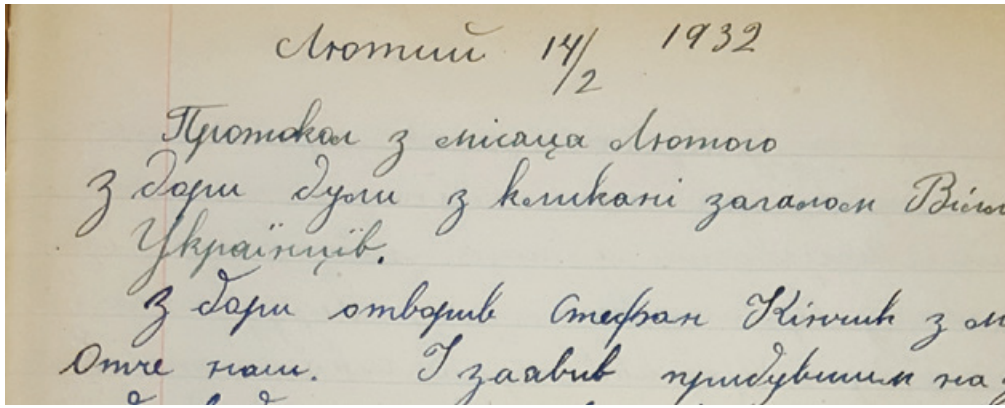 Лютий 14/2 1932
Протокол з місяца Лютого
З бори були з кликані загалом Віль
Українців.
З бори отворив Стефан Кінчик з м
Отче наш. І заавив прибувшим на